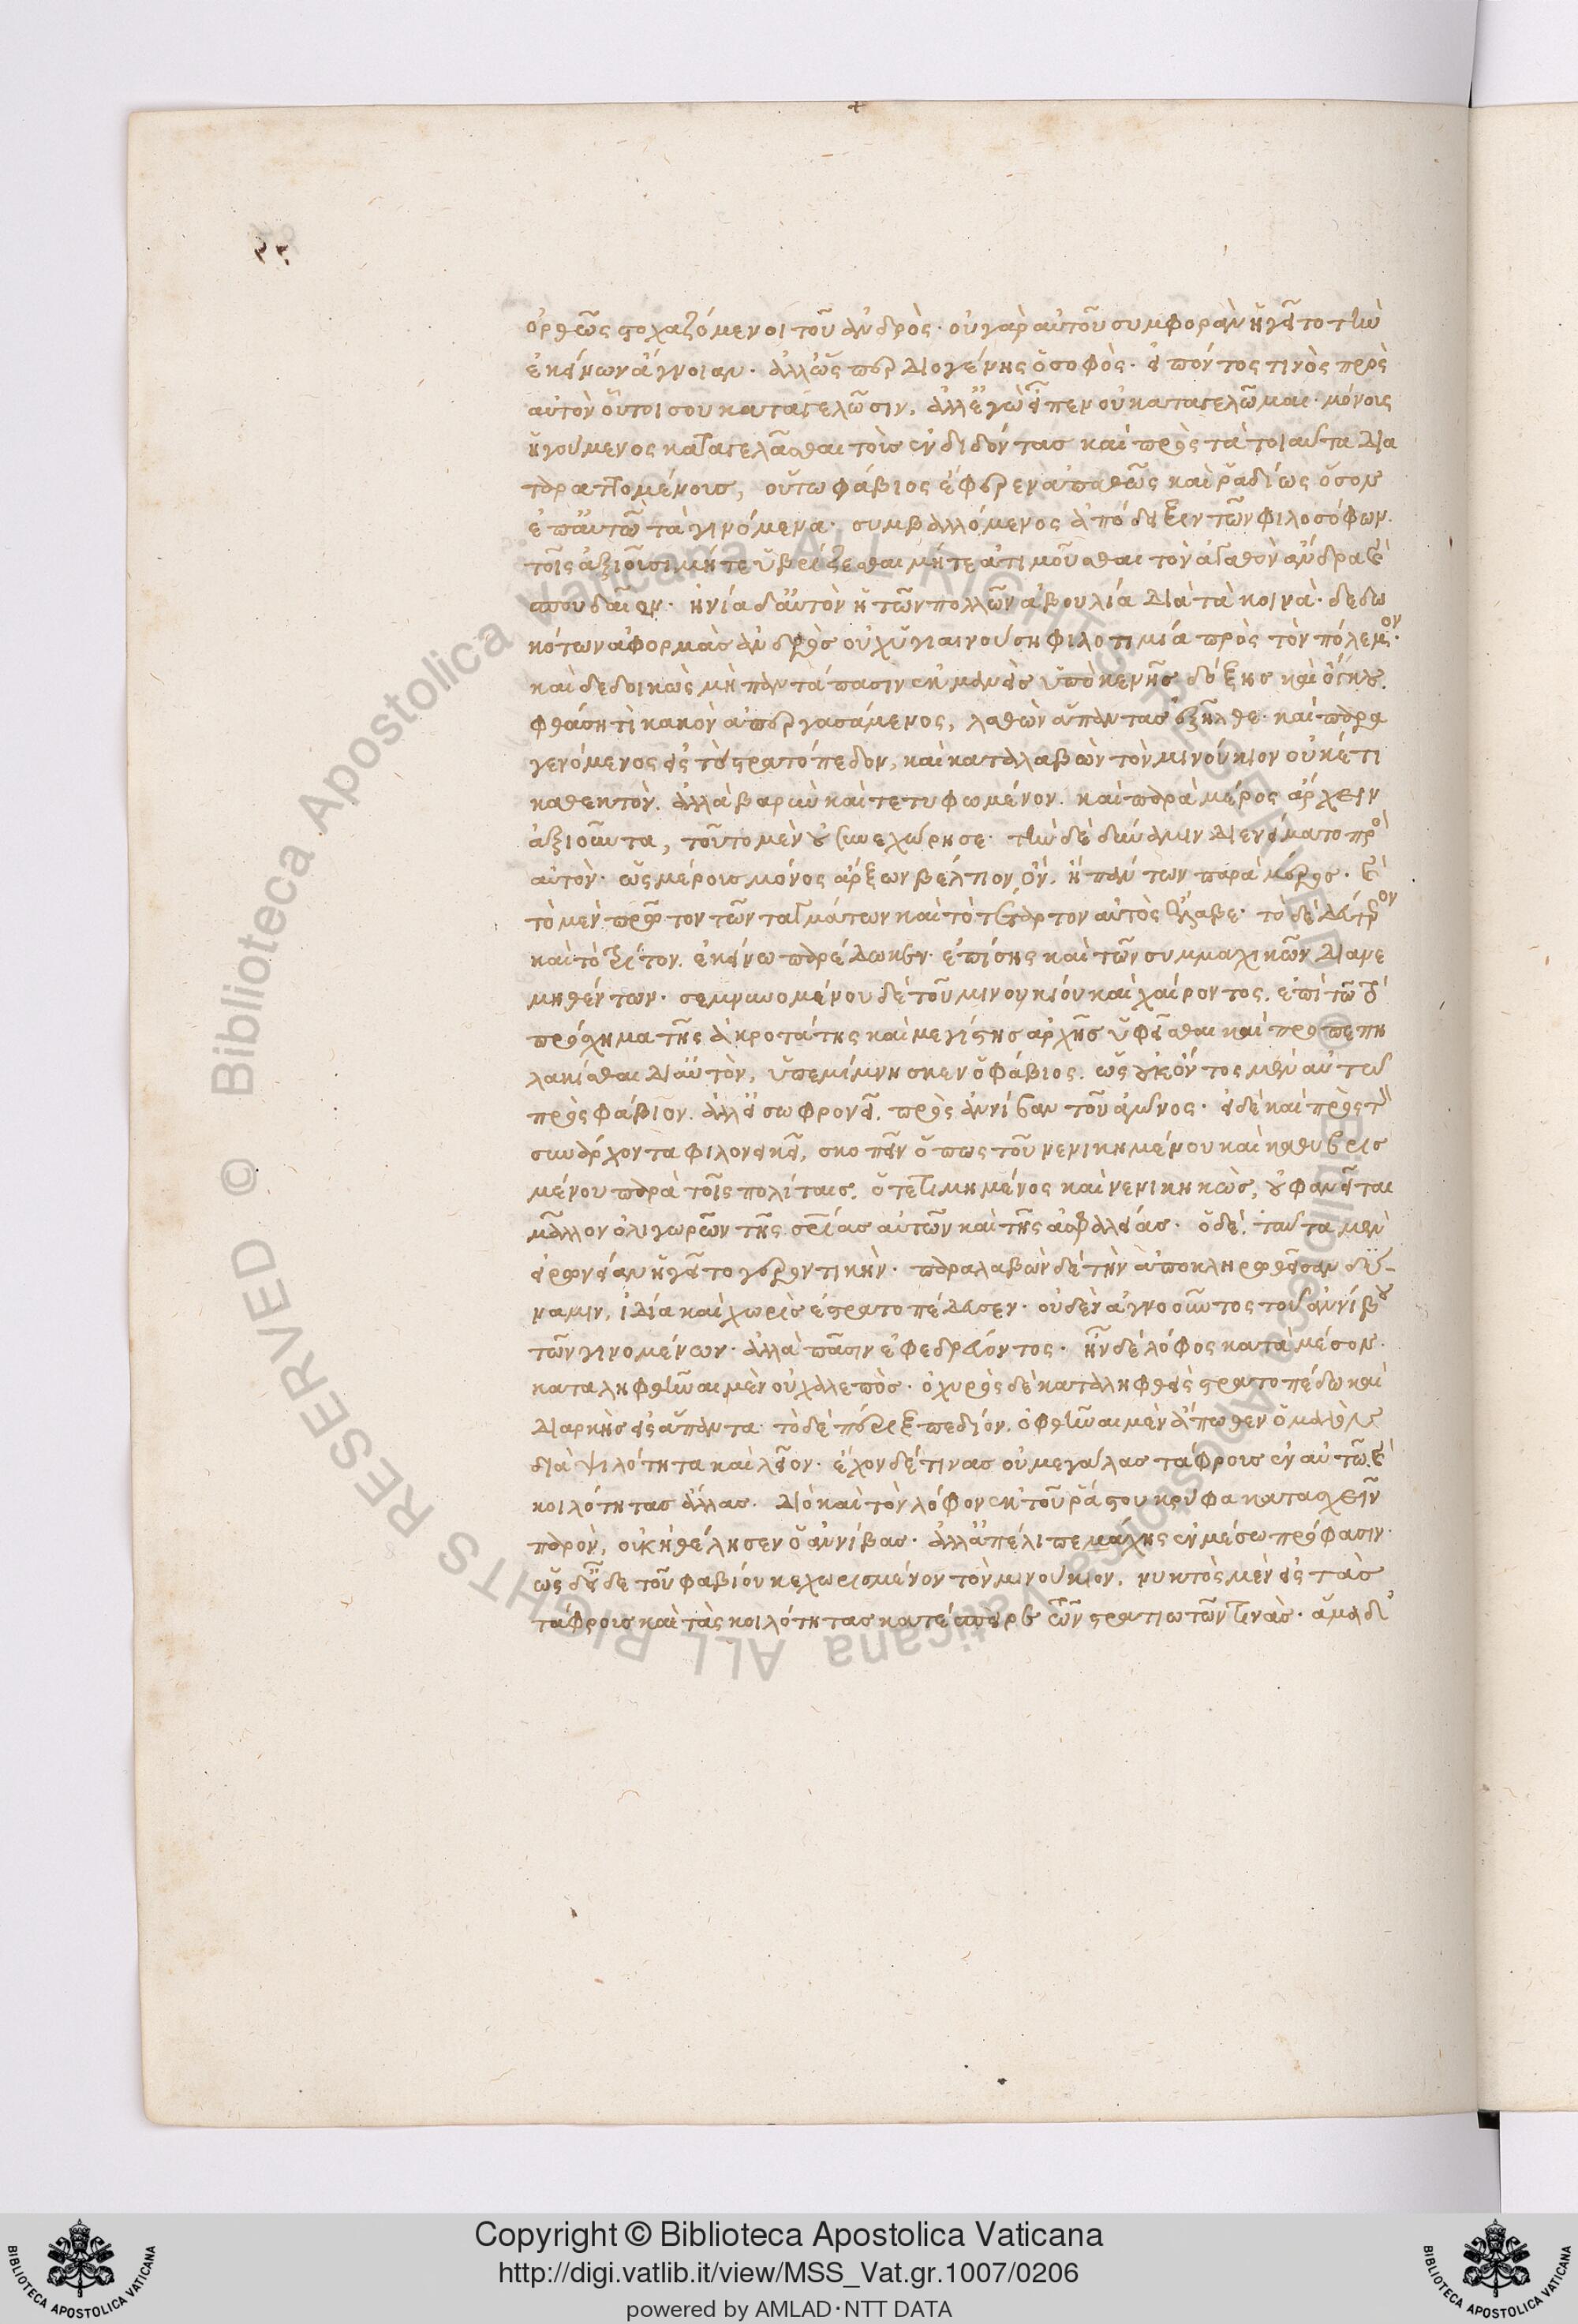 ὀρθῶς στοχαζόμενοι τοῦ ἀνδρὸς· οὐ γὰρ αὐτοῦ συμφορὰν ἡγεῖτο τὴν
ἐκείνων ἄγνοιαν· ἀλλ' ὥσπερ Διογένης ὁ σοφὸς· εἰπόντος τινὸς πρὸς
αὐτὸν οὗτοι σου καταγελῶσιν, ἀλλ' ἐγὼ εἶπεν οὐ καταγελῶμαι· μόνους
ἡγούμενος καταγελᾶσθαι τοὺς ἐνδιδόντας καὶ πρὸς τὰ τοιαῦτα δια
ταραττομένους, οὕτω φάβιος ἔφερεν ἀπαθῶς καὶ ῥαδίως ὅσον
ἐπ' αὐτῶ τὰ γινόμενα· συμβαλλόμενος ἀπόδειξιν τῶν φιλοσόφων·
τοῖς ἀξιοῦσι μήτε ὑβρίζεσθαι μήτε ἀτιμοῦσθαι τὸν ἀγαθὸν ἄνδρα καὶ
σπουδαῖον· ἠνία δ' αὐτὸν ἡ τῶν πολλῶν ἀβουλία διὰ τὰ κοινὰ· δεδω
κότων ἀφορμὰς ἀνδρὸς οὐχ ὑγιαινούση φιλοτιμία πρὸς τὸν πόλεμον·
καὶ δεδοικὼς μὴ παντάπασιν ἐκμανεὶς ὑπὸ κενῆς δόξης καὶ ὄγκου.
φθάση τὶ κακὸν ἀπεργασάμενος, λαθὼν ἅπαντας ἐξῆλθε· καὶ παρα
γενόμενος εἰς τὸ στρατόπεδον, καὶ καταλαβὼν τὸν μινούκιον οὐκέτι
καθεκτὸν. ἀλλὰ βαρὺν καὶ τετυφωμένον. καὶ παρὰ μέρος ἄρχειν
ἀξιοῦντα, τοῦτο μὲν οὐ συνεχώρησε· τὴν δὲ δύναμιν διενείματο πρὸς
αὐτὸν· ὡς μέρους μόνος ἄρξων βέλτιον ὂν. ἢ πάντων παρὰ μέρος· καὶ
τὸ μὲν πρῶτον τῶν ταγμάτων καὶ τὸ τέταρτον αὐτὸς ἔλαβε· τὸ δὲ δεύτερον
καὶ τὸ τρίτον. ἐκείνω παρέδωκεν· ἐπίσης καὶ τῶν συμμαχικῶν διανε
μηθέντων· σεμνυνομένου δὲ τοῦ μινουκίου καὶ χαίροντος. ἐπὶ τῶ τὸ
πρόσχημα τῆς ἀκροτάτης καὶ μεγίστης ἀρχῆς ὑφεῖσθαι καὶ προπεπη
λακίσθαι δι' αὐτὸν, ὑπεμίμνησκεν ὁ φάβιος. ὡς οὐκ ὄντος μὲν αὐτῶ
πρὸς φάβιον. ἀλλ' εἰ σωφρονεῖ. πρὸς ἀννίβαν τοῦ ἀγῶνος· εἰ δὲ καὶ πρὸς τὸν
συνάρχοντα φιλονεικεῖ, σκοπεῖν ὅπως τοῦ νενικημένου καὶ καθυβρισ
μένου παρὰ τοῖς πολίταις. ὁ τετιμημένος καὶ νενικηκὼς, οὐ φανεῖται
μᾶλλον ὀλιγωρῶν τῆς σωτηρίας αὐτῶν καὶ τῆς ἀσφαλείας· ὁ δὲ. ταῦτα μὲν
εἰρωνείαν ἡγεῖτο γεροντικὴν· παραλαβὼν δὲ τὴν ἀποκληρωθεῖσαν δύ
ναμιν, ἰδία καὶ χωρὶς ἐστρατοπέδευσεν· οὐδὲν ἀγνοοῦντος τοῦ ἀννίβου
τῶν γινομένων· ἀλλὰ πᾶσιν ἐφεδρεύοντος· ἦν δὲ λόφος κατὰ μέσον·
καταληφθῆναι μὲν οὐ χαλεπὸς· ὀχυρὸς δὲ καταληφθεὶς στρατοπέδω καὶ
διαρκὴς εἰς ἅπαντα· τὸ δὲ πέριξ πεδίον. ὀφθῆναι μὲν ἄπωθεν ὁμαλὸν
διὰ ψιλότητα καὶ λεῖον· ἔχον δέ τινας οὐ μεγάλας τάφρους ἐν αὐτῶ. καὶ
κοιλότητας ἄλλας. διὸ καὶ τὸν λόφον ἐκ τοῦ ῥάστου κρύφα κατασχεῖν
παρὸν, οὐκ ἠθέλησεν ὁ ἀννίβας· ἀλλ' ἀπέλιπε μάχης ἐν μέσω πρόφασιν·
ὡς δ' εἶδε τοῦ φαβίου κεχωρισμένον τὸν μινούκιον, νυκτὸς μὲν εἰς τὰς
τάφρους καὶ τὰς κοιλότητας κατέσπειρε τῶν στρατιωτῶν τινὰς· ἅμα δ'
Copyright © Biblioteca Apostolica Vaticana
http://digi.vatlib.it/view/MSS_Vat.gr.1007/0206
powered by AMLAD·NTT DATA